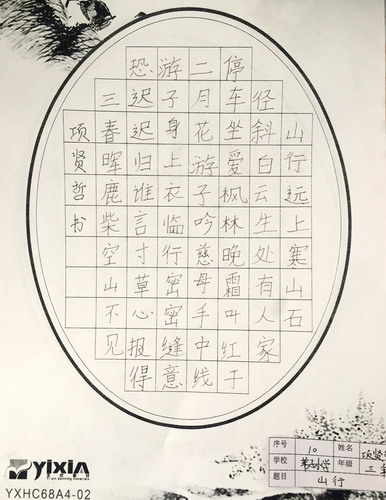 山行远上寒山石
径斜白云生处有人家
停车坐爱枫林晚霜叶红于
二月花游子吟慈母手中线
游子身上衣临行密密缝意
恐迟迟归谁言寸草心报得
三春晖鹿柴空山不见
项贤哲书
序号 10 姓名 项贤
学校 小学 年级 三
题目 山行
yixin
YXHC68A4-02